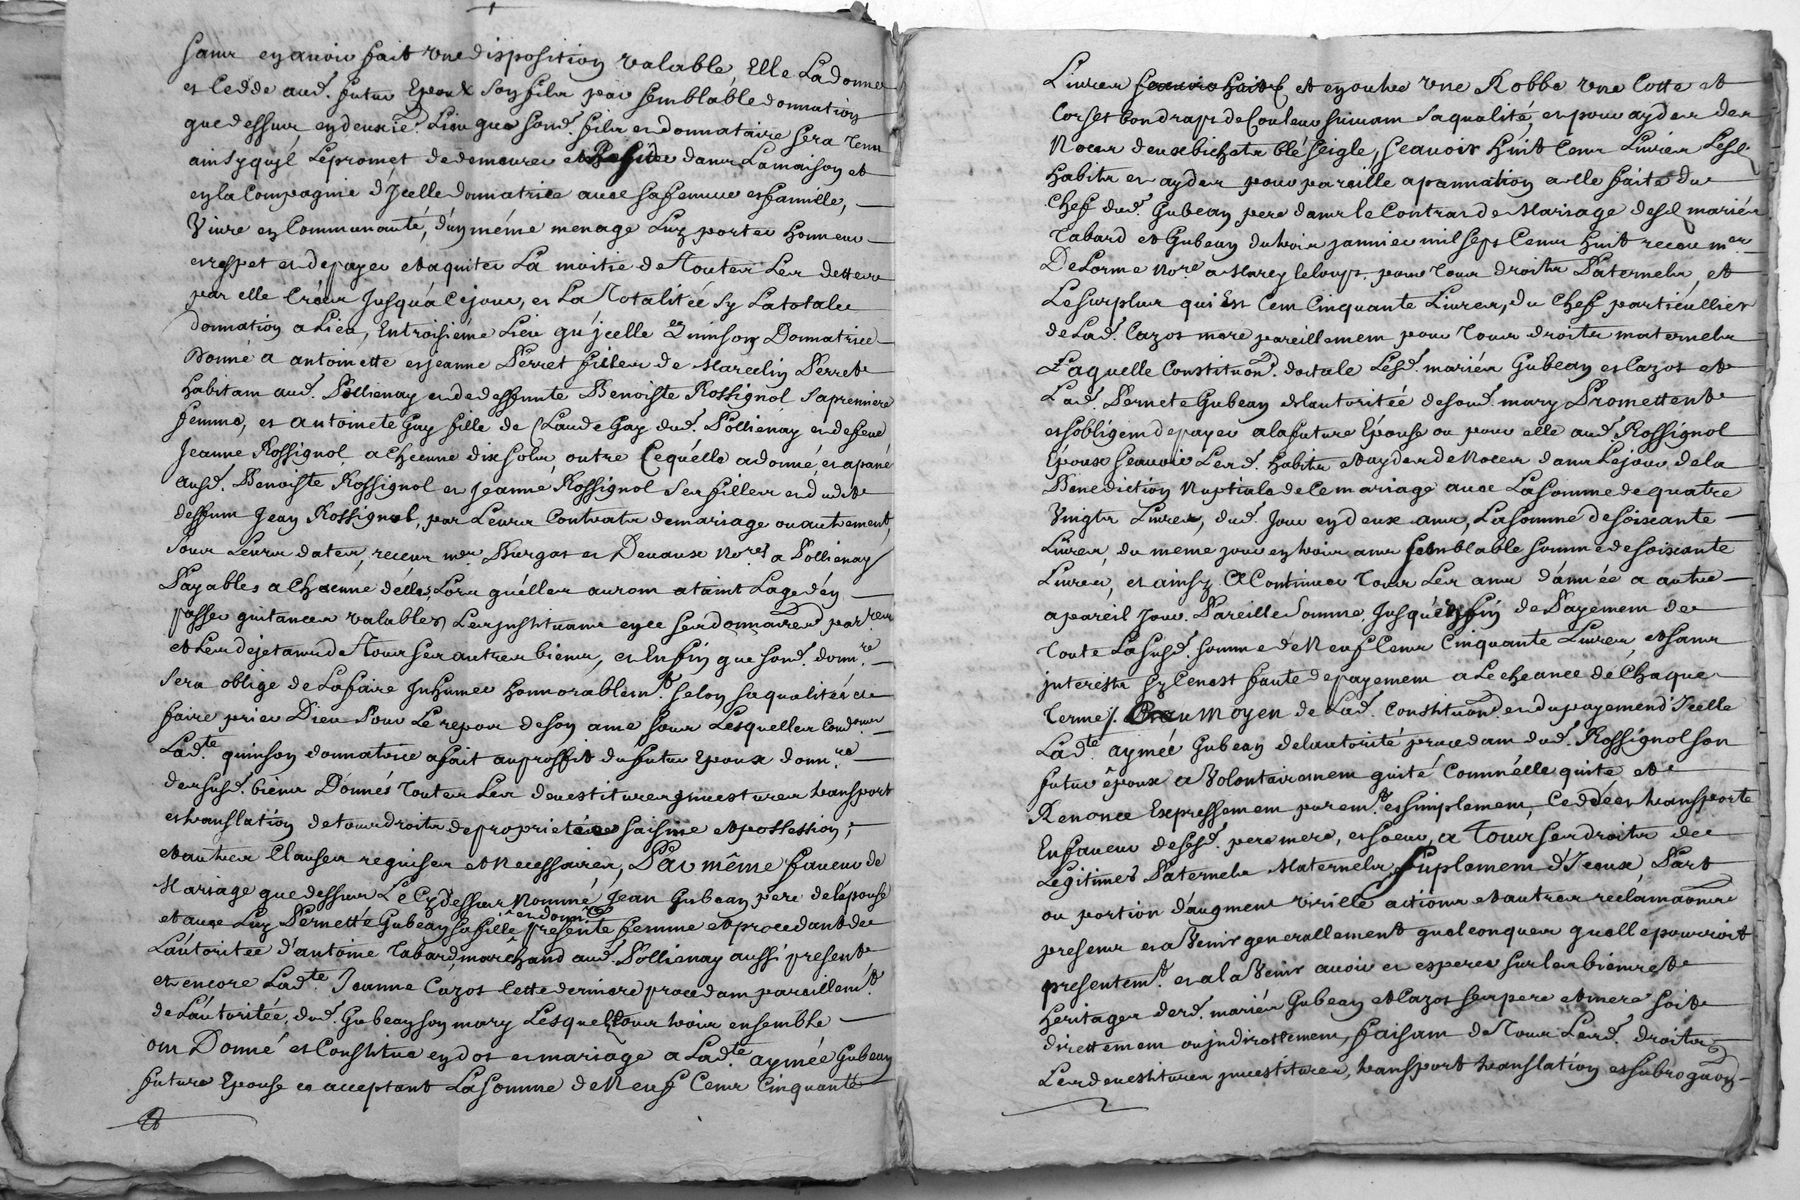 sans en avoir fait une disposition valable, Elle La donne
et Cedde aud. futur Epoux son fils par semblable donnation
que dessus, en deuxie. Lieu que sond. fils et donnataire sera tenu
ainsy quyl Le promet de demeurer et Reside dans La maison et
en la Compagnie d'Jcelle donnatrice avec sa femme et famille,
Vivre en Communauté, d'un même menage Luy porter honneur
et respet et de payer et aquiter La moitie de Toutes Les dettes
par elle Créés Jusqu'a Cejour, et La Totalitée sy La totale
donnation a Lieu, En troisieme Lieu qu'jcelle Quinson Donnatrice
Donne a antoinette et jeanne Perret filles de Marcelin Perret
habitant aud. Pollienay et de deffunte Benoiste Rossignol sa premiere
femme, et antoinete Gay fille de Claude Gay dud. Pollienay et de feue
Jeanne Rossignol a Chacune dix sols, outre Ce qu'elle a donné, et apané
ausd. Benoiste Rossignol et Jeanne Rossignol ses filles et dudit
deffunt Jean Rossignol, par Leurs Contrats de mariage ou autrement,
sous Leurs dates, receus mes Burgas et Devaux No.res a Pollienay
Payables a Chacune d'elles, Lors qu'elles auront ataint L'age d'en
passer quitances valables, Les justituant en ce ses donnaires par
et Les dejetant de Tous ses autres biens, et Enfin que sond. donn.re
sera obligé de La faire Jnhumer honnorablem.t selon sa qualitée et
faire prier Dieu Pour Le repos de son ame sous Lesquelles Cond.
Lad.te quinson donnatrice a fait au proffit du futur Epoux donn.re
des susd. biens Donnés Toutes Les devestitures jnvestures transport
et translation de tous droits de proprietée saisine et possession,
et autres Clauses requises et Necessaires, Par même faveur de
Mariage que dessus Le Cydessus Nommé Jean Gubean pere de l'epouse
et avec Luy Pernette Gubean sa fille presente femme et procedant de
L'autoritée d'antoine Tabard marchand aud. Pollienay aussi present
et encore Lad.te Jeanne Cazot Cette derniere procedant pareillem.t
de L'autoritée, dud. Gubean son mary Lesquels Tous trois ensemble
ont Donné et Constitué en dot et mariage a Lad.te aymée Gubean
future Epouse ce acceptant La somme de Neuf Cent Cinquante
Livres et en outre une Robbe une Cotte et
Corset bon drap de Couleur suivant sa qualité, et pour ayder des
Noces deux bichets blé seigle, sçavoir huit Cent Livres Lesd.
habits et ayder pour pareille apannation a elle faite du
Chef dud. Gubean pere dans le Contrat de Mariage desd. mariés
Tabard et Gubean du trois janvier mil sept Cent huit receu me.
DeLorme No.re a Marcy le loup. pour Tous droits Paternels, et
Le surplus qui Est Cent Cinquante Livres, du Chef particullier
de Lad. Cazot mere pareillement pour Tous droits maternels
Laquelle Constituon. dotale Lesd. mariés Gubean et Cazot et
Lad. Pernete Gubean de L'autoritée desond. mary Promettent
et s'obligent de payer a la future Epouse ou pour elle aud. Rossignol
Epoux sçavoir Lesd. habits et ayder de Noces dans Le jour de la
Benediction Nuptiale de Ce mariage avec La somme de quatre
Vingts Livres, dud. Jour en deux ans, La somme de soixante
Livres, du meme jour en trois ans semblable somme de soixante
Livres, et ainsy A Continuer Tous Les ans d'année a autre
a pareil Jour Pareille somme, Jusqu'a Enfin de Payement de
Toute La susd. somme de Neuf Cent Cinquante Livres, et sans
jnterests sy Ce n'est faute de payement a L'echeance de Chaque
Terme/. au moyen de Lad. Constituon. et du payement d'Jcelle
Lad.te aymée Gubean de lautorité procedant dud. Rossignol son
futur époux a Volontairement quité Comm'elle quite, et
Renonce Expressement purem.t et simplement, Cedde et transporte
En faveur desd. pere mere, et soeur, a Tous ses droits de
Legitimes Paternels Maternels, suplement d'Jceux, Part
ou portion d'augment virille actions et autres reclamaons
presents et a Venir generallement quelconques quelle pourroit
presentem.t et a la Venir avoir et esperer sur les biens et
heritages desd. mariés Gubean et Cazot ses pere et mere soit
directtement ou jndirettement, faisant de Tous Lesd. droits
Les devestitures jnvestitures, transport translation et subrogaon